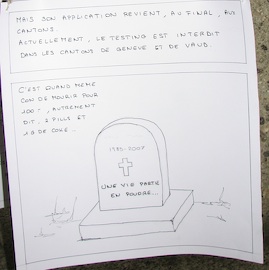 MAIS SON APPLICATION REVIENT, AU FINAL, AUX
CANTONS.
ACTUELLEMENT, LE TESTING EST INTERDIT
DANS LES CANTONS DE GENEVE ET DE VAUD.
C'EST QUAND MEME
CON DE MOURIR POUR
100.-, AUTREMENT
DIT, 2 PILLS ET
1 G DE COKE...
1985-2007
UNE VIE PARTIE
EN POUDRE...